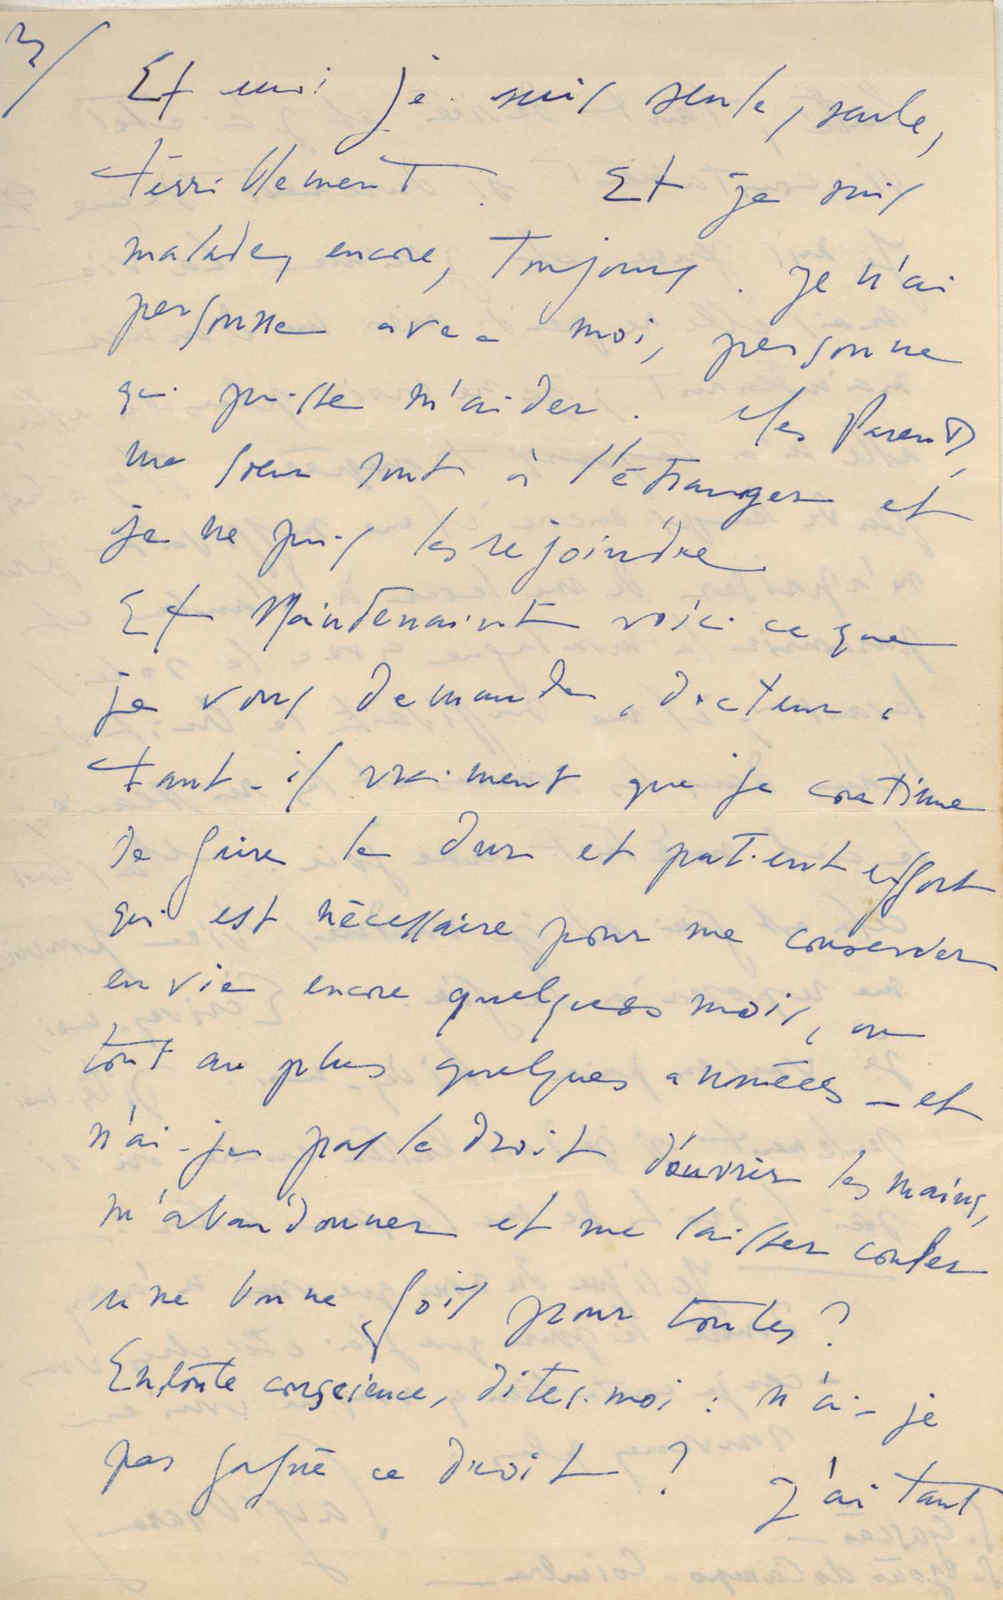 3/
Et moi je suis seule, seule,
terriblement. Et je suis
malade, encore, toujours. Je n'ai
personne avec moi, personne
qui puisse m'aider. Mes Parents,
ma sœur sont à l'étranger et
je ne puis les rejoindre
Et Maintenant voici ce que
je vous demande, docteur,
Faut-il vraiment que je continue
de faire le dur et patient effort
qui est nécessaire pour me conserver
en vie encore quelques mois, ou
tout au plus quelques années – et
n'ai-je pas le droit d'ouvrir les mains,
m'abandonner et me laisser couler
une bonne fois pour toutes ?
En toute conscience, dites-moi : n'ai-je
pas gagné ce droit ? J'ai tant